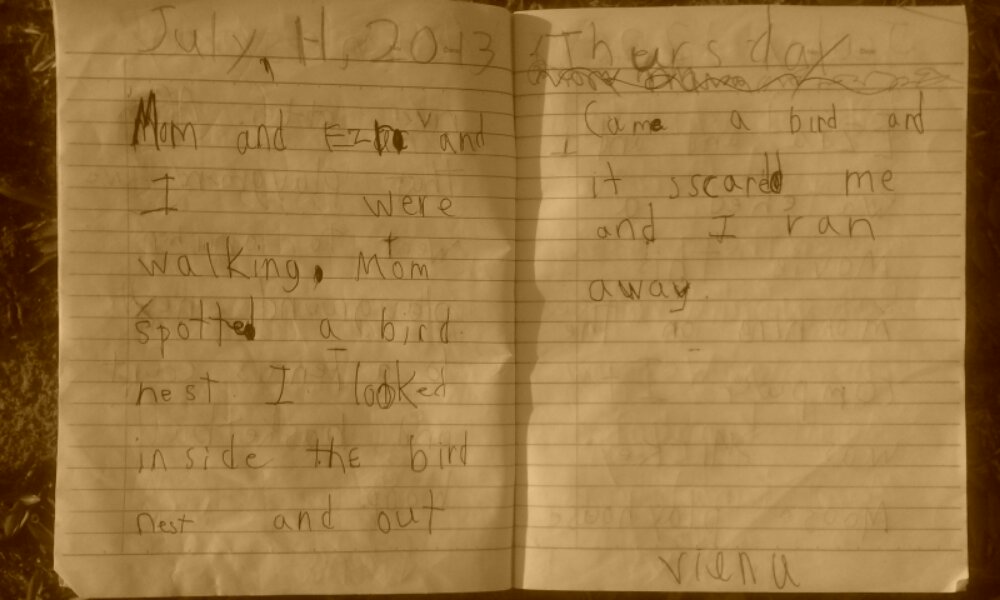 July, 11, 2013
Mom and and
I were
walking, Mom
spotted a bird
nest I looked
inside the bird
nest and out
Thursday
Came a bird and
it sscared me
and I ran
away.
vienu